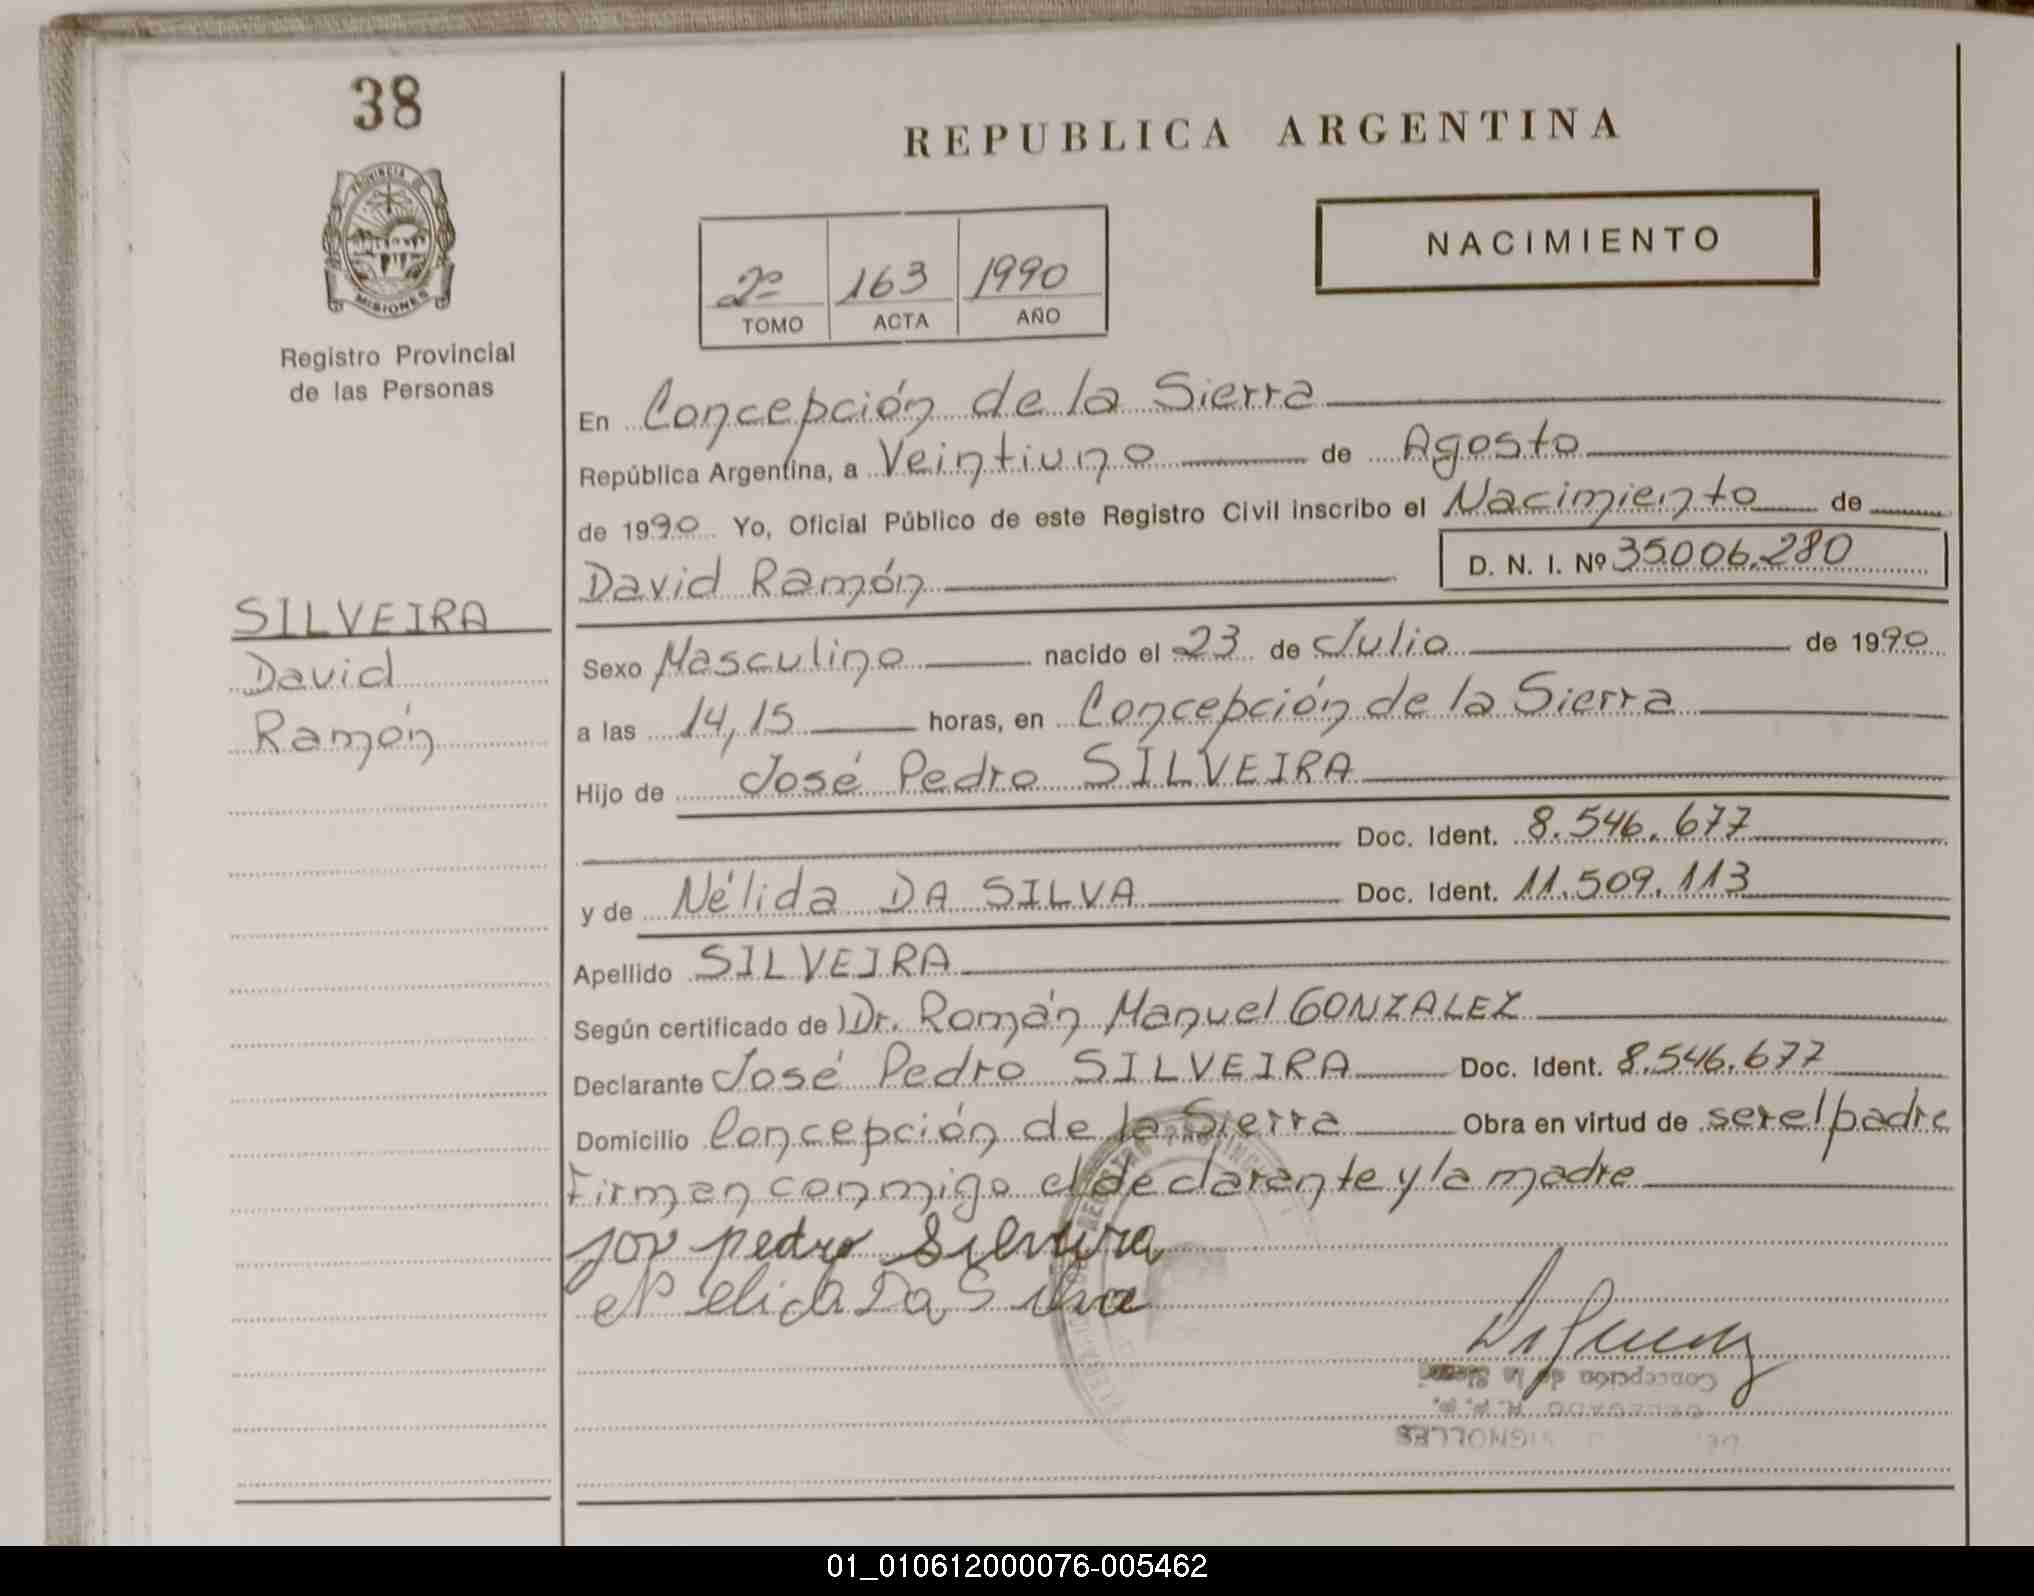 38
PROVINCIA DE
MISIONES
Registro Provincial
de las Personas
SILVEIRA
David
Ramón
REPUBLICA ARGENTINA
NACIMIENTO
2º 163 1990
TOMO ACTA AÑO
En Concepción de la Sierra
República Argentina, a Veintiuno de Agosto
de 1990 Yo, Oficial Público de este Registro Civil inscribo el Nacimiento de
David Ramón D. N. I. Nº 35.006.280
Sexo Masculino nacido el 23 de Julio de 1990
a las 14,15 horas, en Concepción de la Sierra
Hijo de José Pedro SILVEIRA
Doc. Ident. 8.546.677
y de Nélida DA SILVA Doc. Ident. 11.509.113
Apellido SILVEIRA
Según certificado de Dr. Román Manuel GONZALEZ
Declarante José Pedro SILVEIRA Doc. Ident. 8.546.677
Domicilio Concepción de la Sierra Obra en virtud de ser el padre
Firman conmigo el declarante y la madre
pedro Silveira
Nelida Da Silva
Concepción de la Sierra
DELEGADO R.P.P.
01_010612000076-005462